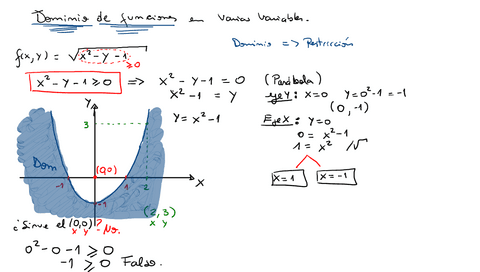 Dominio de funciones en varias variables.
Dominio => Restricción
f(x,y) = √(x²-y-1)
≥0
x²-y-1 ≥ 0 => x²-y-1 = 0
x²-1 = y
y = x²-1
(Parábola)
eje Y: x=0 y=0²-1=-1
(0,-1)
Eje X: y=0
0 = x²-1
1 = x² /√
x=1 x=-1
Y
3
Dom
(0,0)
-1 1 2 X
-1
(2,3)
x y
¿Sirve el (0,0)? No.
x y
0²-0-1 ≥ 0
-1 ≥ 0 Falso.